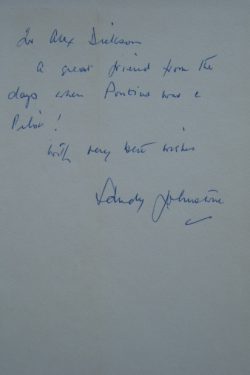 To Alex Dickson
A great friend from the
days when Pontius was a
Pilot!
With very best wishes
Sandy Johnstone